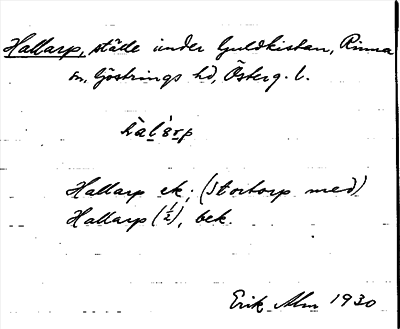 Hallarp, ställe under Guldkistan, Rinna
sn, Göstrings hd, Österg. l.
Hallarp ek; (Stortorp med)
Hallarp (½), bek.
Erik Alm 1930